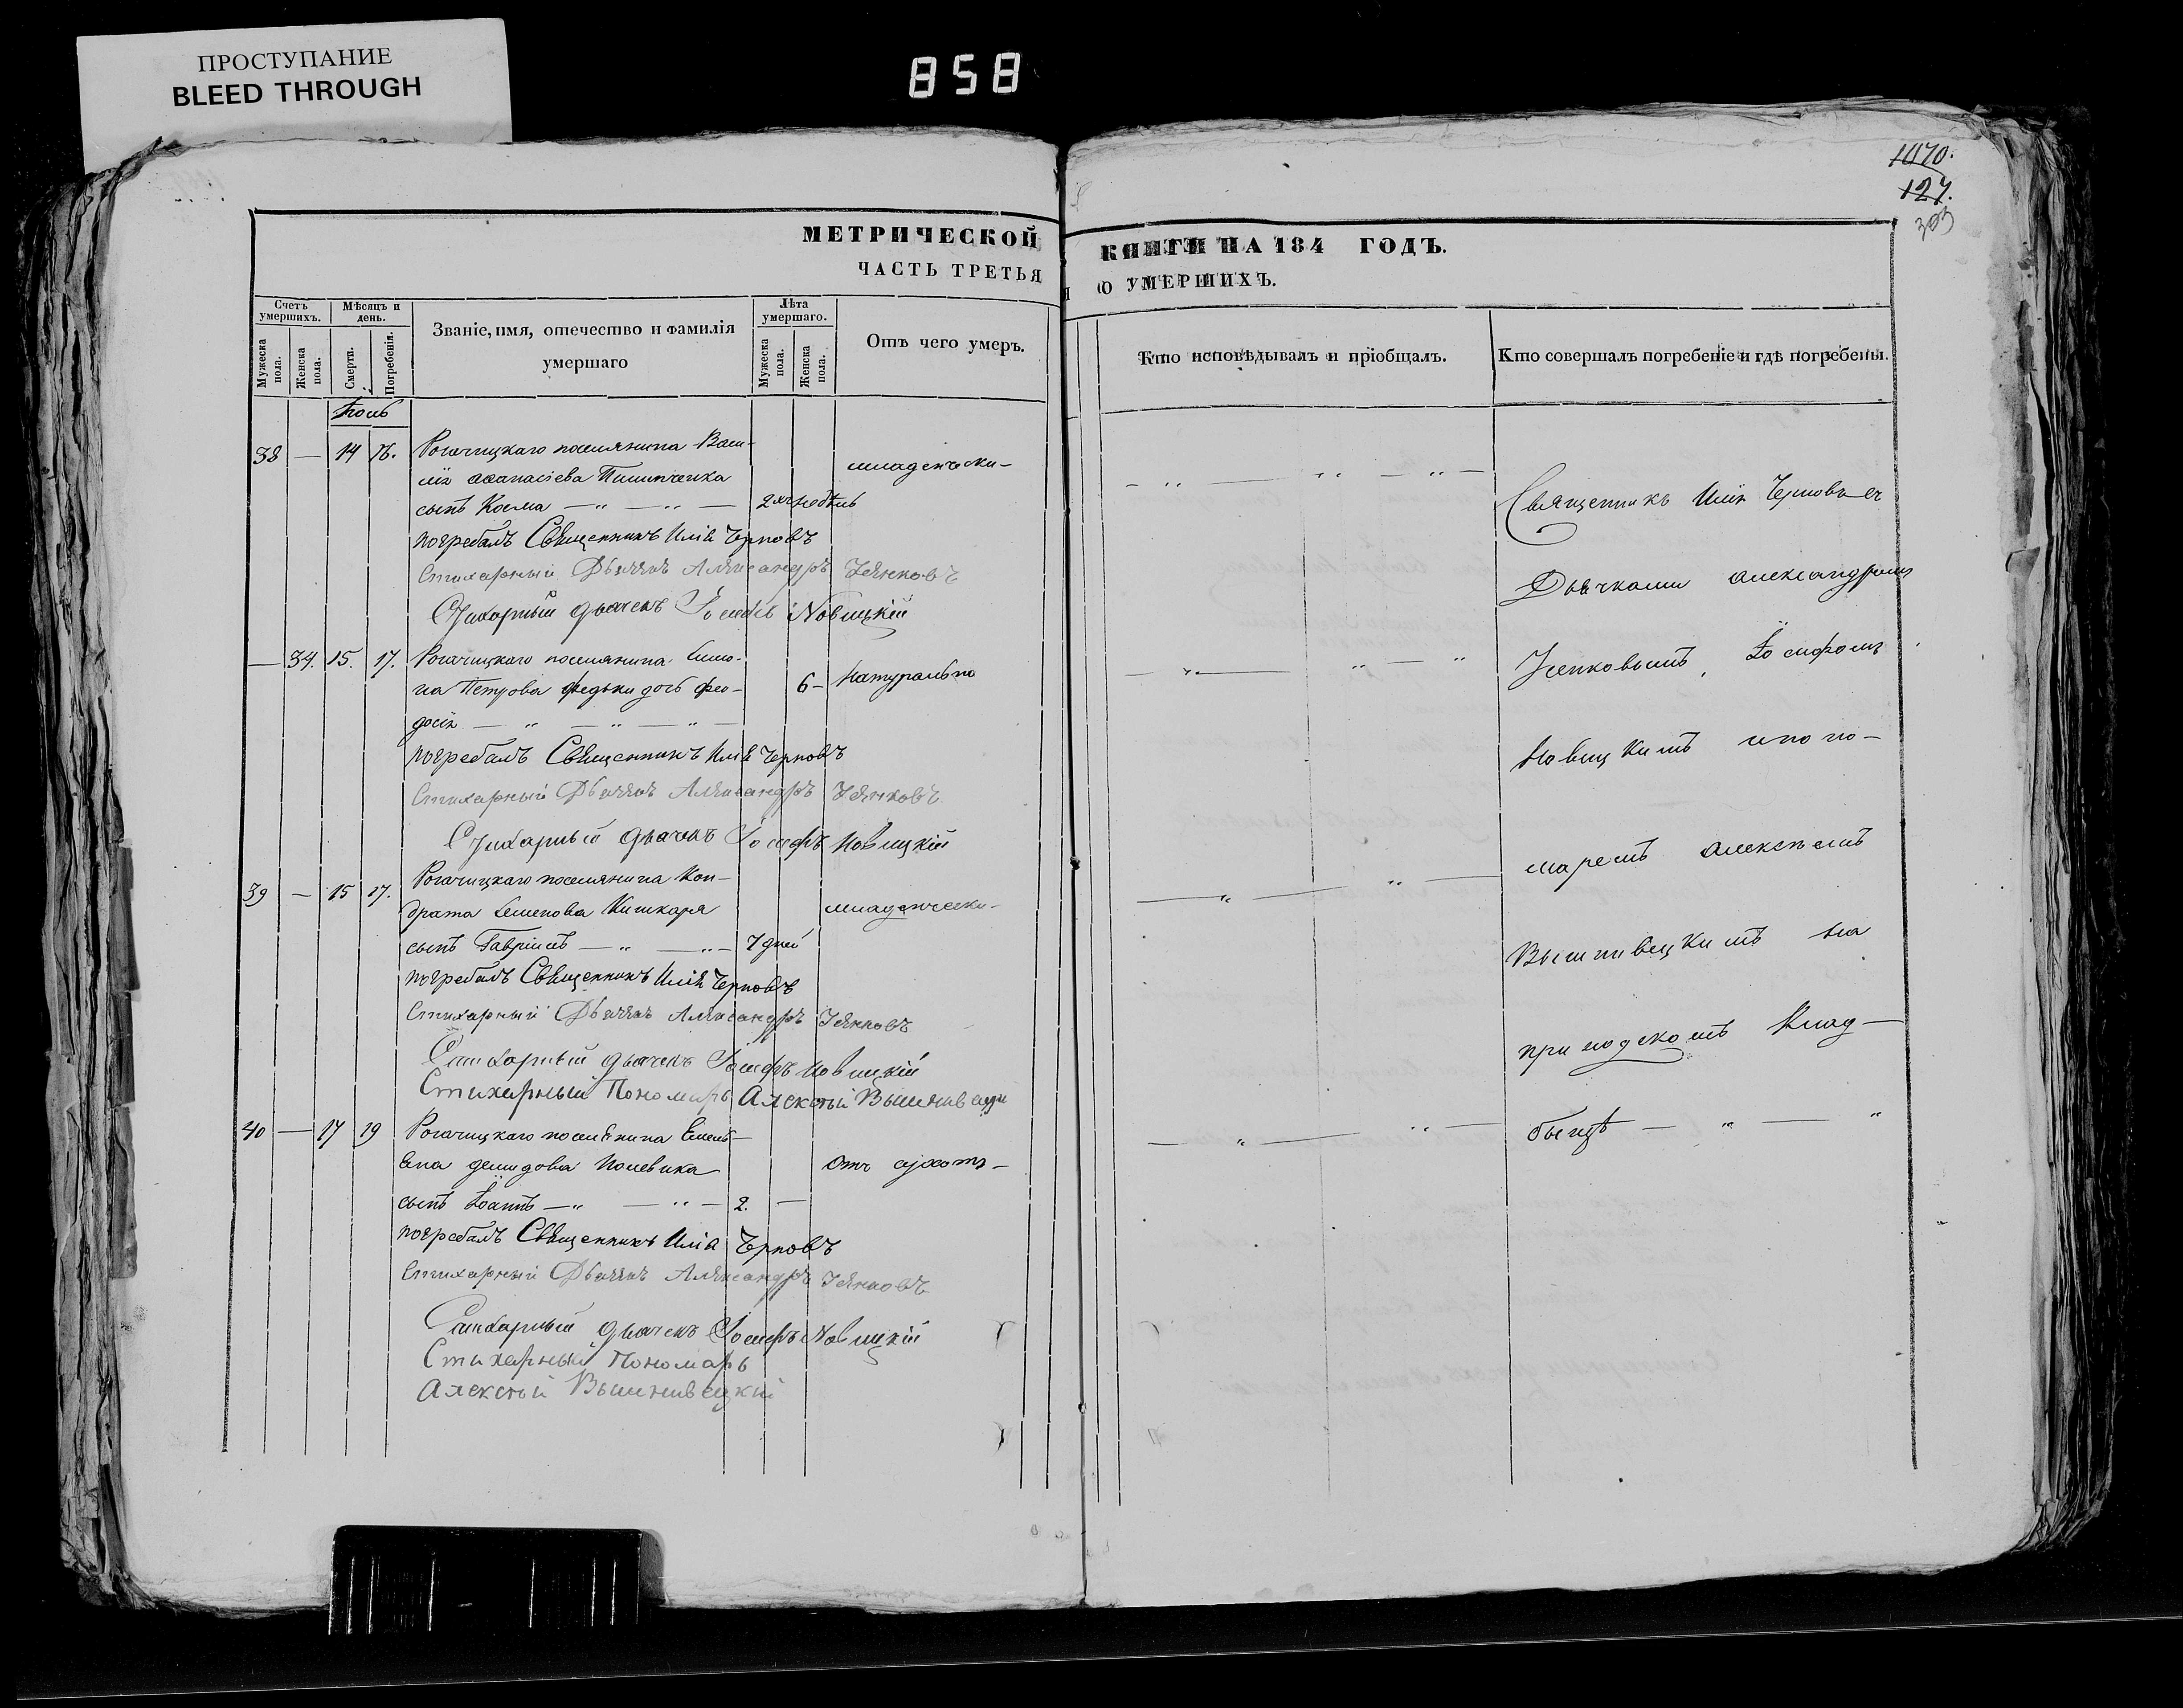 ПРОСТУПАНИЕ
BLEED THROUGH
858
1070.
127.
МЕТРИЧЕСКОЙ КНИГИ НА 184 ГОДЪ.
ЧАСТЬ ТРЕТЬЯ О УМЕРШИХЪ.
Счетъ умершихъ.
Мѣсяцъ и день.
Званіе, имя, отечество и фамилія умершаго
Лѣта умершаго.
Отъ чего умеръ.
Кто исповѣдывалъ и пріобщалъ.
Кто совершалъ погребеніе и гдѣ погребены.
Мужеска пола.
Женска пола.
Смерти.
Погребенія.
Мужеска пола.
Женска пола.
38 — 14 16. Рогачицкаго поселянина Васи-
лія Аѳанасіева Пилипченка младенчески-
сынъ Косма — „ — „ — 2хъ недѣль
погребалъ Священникъ Илія Черновъ
Стихарный Дьячекъ Александръ
Стихарный дьячекъ Іосифъ Новицкій
— 34. 15. 17. Рогачицкаго поселянина Симо-
на Петрова Федьки дочь Фео- 6 — натурально
досія — „ — „ — „ —
погребалъ Священникъ Илія Черновъ
Стихарный Дьячекъ Александръ
Стихарный дьячекъ Іосифъ Новицкій
39 — 15 17. Рогачицкаго поселянина Кон-
драта Семенова Кишкаря младенчески-
сынъ Гавріилъ — „ — „ — 7 дней
погребалъ Священникъ Илія Черновъ
Стихарный Дьячекъ Александръ
Стихарный дьячекъ Іосифъ Новицкій
Стихарный Пономарь Алексѣй
40 — 17 19 Рогачицкаго поселянина Емель-
яна Демидова Полевика отъ сухотъ —
сынъ Іоаннъ — „ — „ — 2. —
погребалъ Священникъ Илія Черновъ
Стихарный Дьячекъ Александръ
Стихарный дьячекъ Іосифъ Новицкій
Стихарный Пономарь
Алексѣй Вышнивецкій
Священникъ Илія Черновъ съ
Дьячками Александромъ
Іосифомъ
Новицкимъ и поно-
маремъ Алексѣемъ
Вышнивецкимъ на
приходскомъ Клад-
бищѣ — „ — „